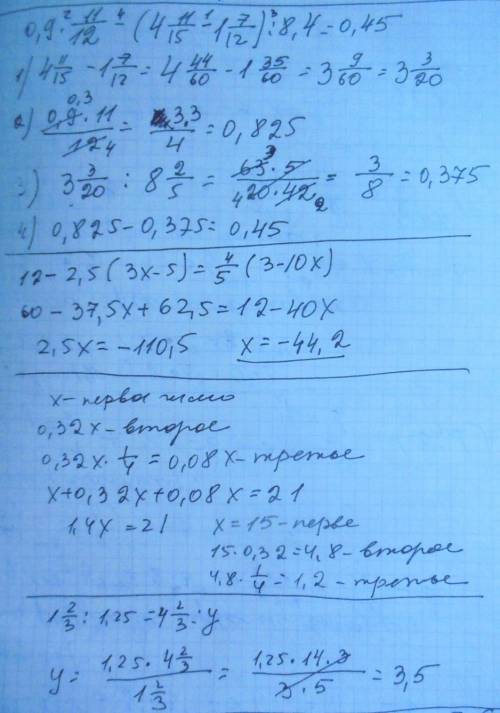 0,9 ·² 11/12 -⁴ (4 11/15 -¹ 1 7/12) :³ 8,4 = 0,45
1) 4 11/15 - 1 7/12 = 4 44/60 - 1 35/60 = 3 9/60 = 3 3/20
2) 0,3 0,9 · 11 / 12 4 = 3,3 / 4 = 0,825
3) 3 3/20 : 8 2/5 = 63 3 · 5 / 4 20 · 42 2 = 3/8 = 0,375
4) 0,825 - 0,375 = 0,45
12 - 2,5 (3x - 5) = 4/5 (3 - 10x)
60 - 37,5x + 62,5 = 12 - 40x
2,5x = -110,5 x = -44,2
x - первое число
0,32x - второе
0,32x · 1/4 = 0,08x - третье
x + 0,32x + 0,08x = 21
1,4x = 21 x = 15 - перве
15 · 0,32 = 4,8 - второе
4,8 · 1/4 = 1,2 - третье
1 2/3 : 1,25 = 4 2/3 : y
y = 1,25 · 4 2/3 / 1 2/3 = 1,25 · 14 · 3 / 3 · 5 = 3,5